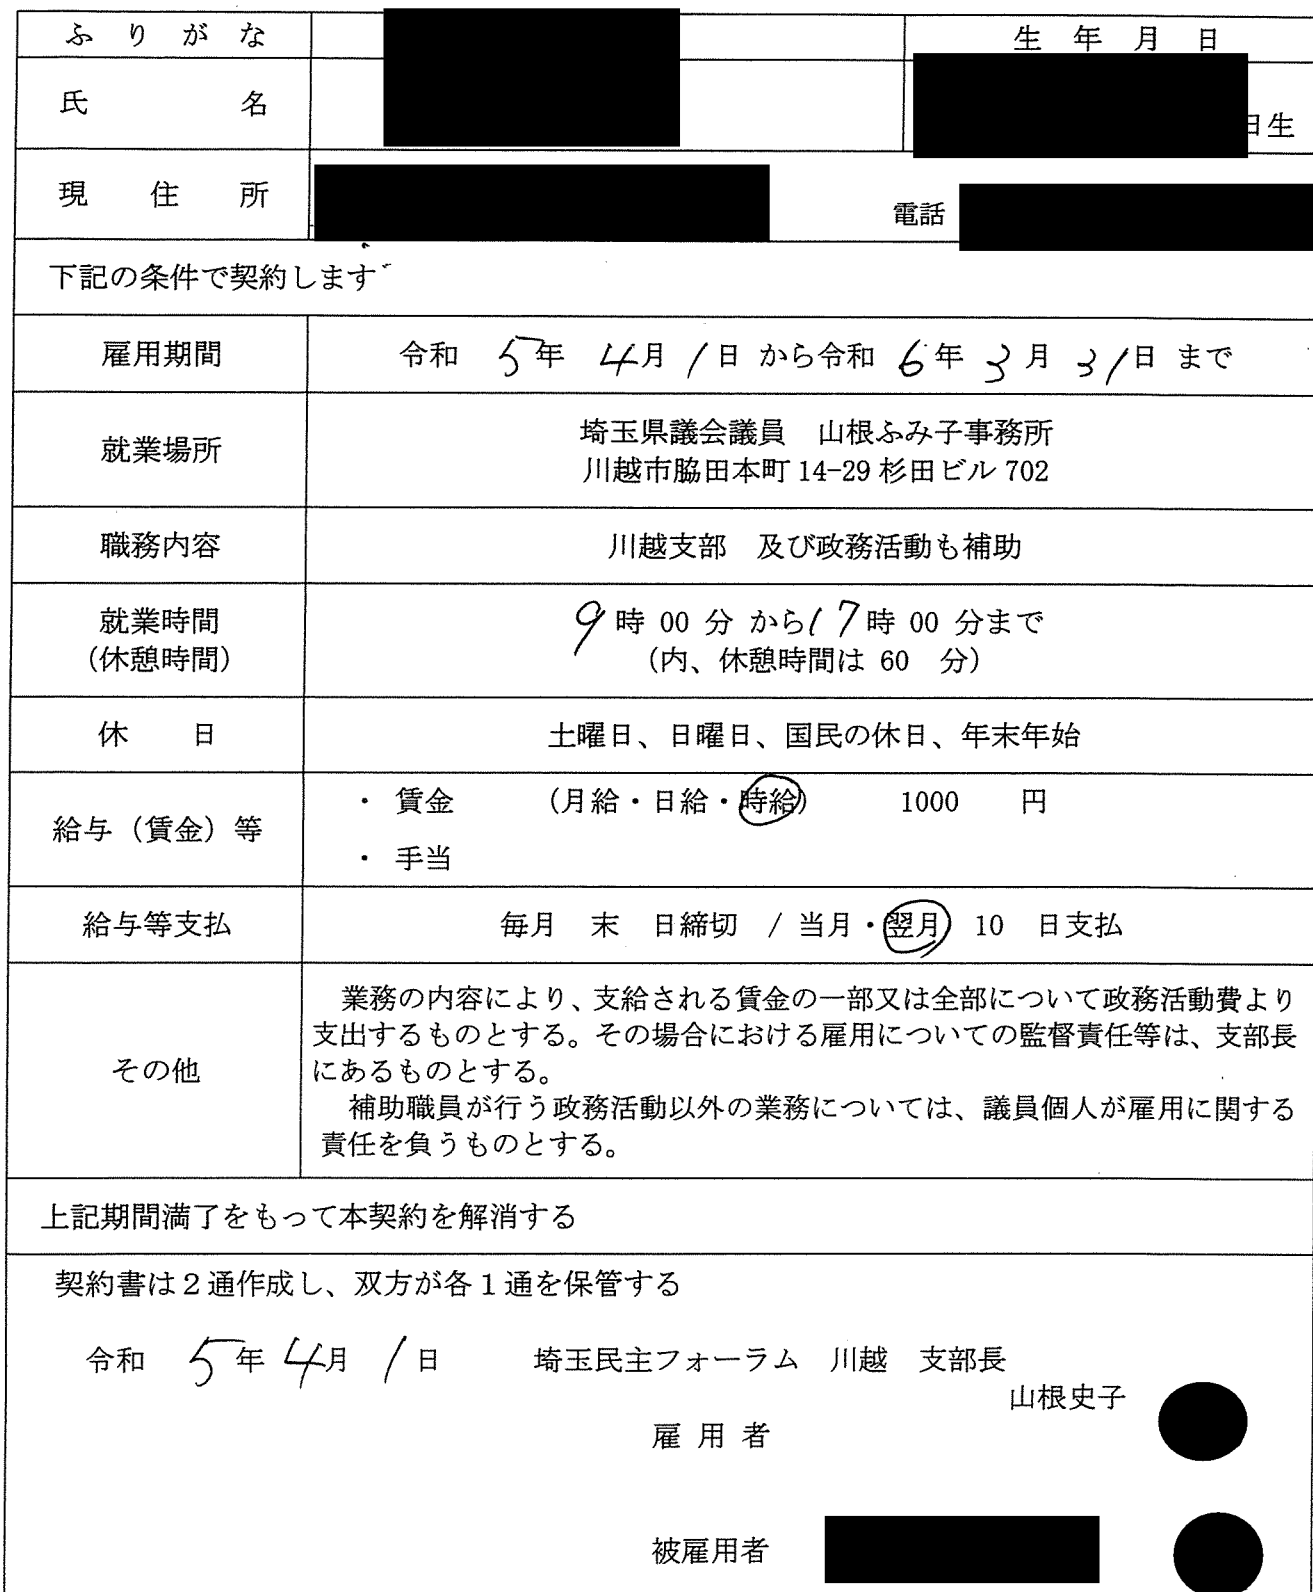 ふりがな
生年月日
氏名
日生
現住所
電話
下記の条件で契約します
雇用期間
令和 5年 4月 1日 から令和 6年 3月 31日 まで
就業場所
埼玉県議会議員 山根ふみ子事務所
川越市脇田本町 14-29 杉田ビル 702
職務内容
川越支部 及び政務活動も補助
就業時間
(休憩時間)
9時 00 分 から17時 00 分まで
(内、休憩時間は 60 分)
休日
土曜日、日曜日、国民の休日、年末年始
給与（賃金）等
・ 賃金 (月給・日給・時給) 1000 円
・ 手当
給与等支払
毎月 末 日締切 / 当月・翌月 10 日支払
その他
業務の内容により、支給される賃金の一部又は全部について政務活動費より
支出するものとする。その場合における雇用についての監督責任等は、支部長
にあるものとする。
補助職員が行う政務活動以外の業務については、議員個人が雇用に関する
責任を負うものとする。
上記期間満了をもって本契約を解消する
契約書は２通作成し、双方が各１通を保管する
令和 5年 4月 1日 埼玉民主フォーラム 川越 支部長
山根史子
雇用者
被雇用者